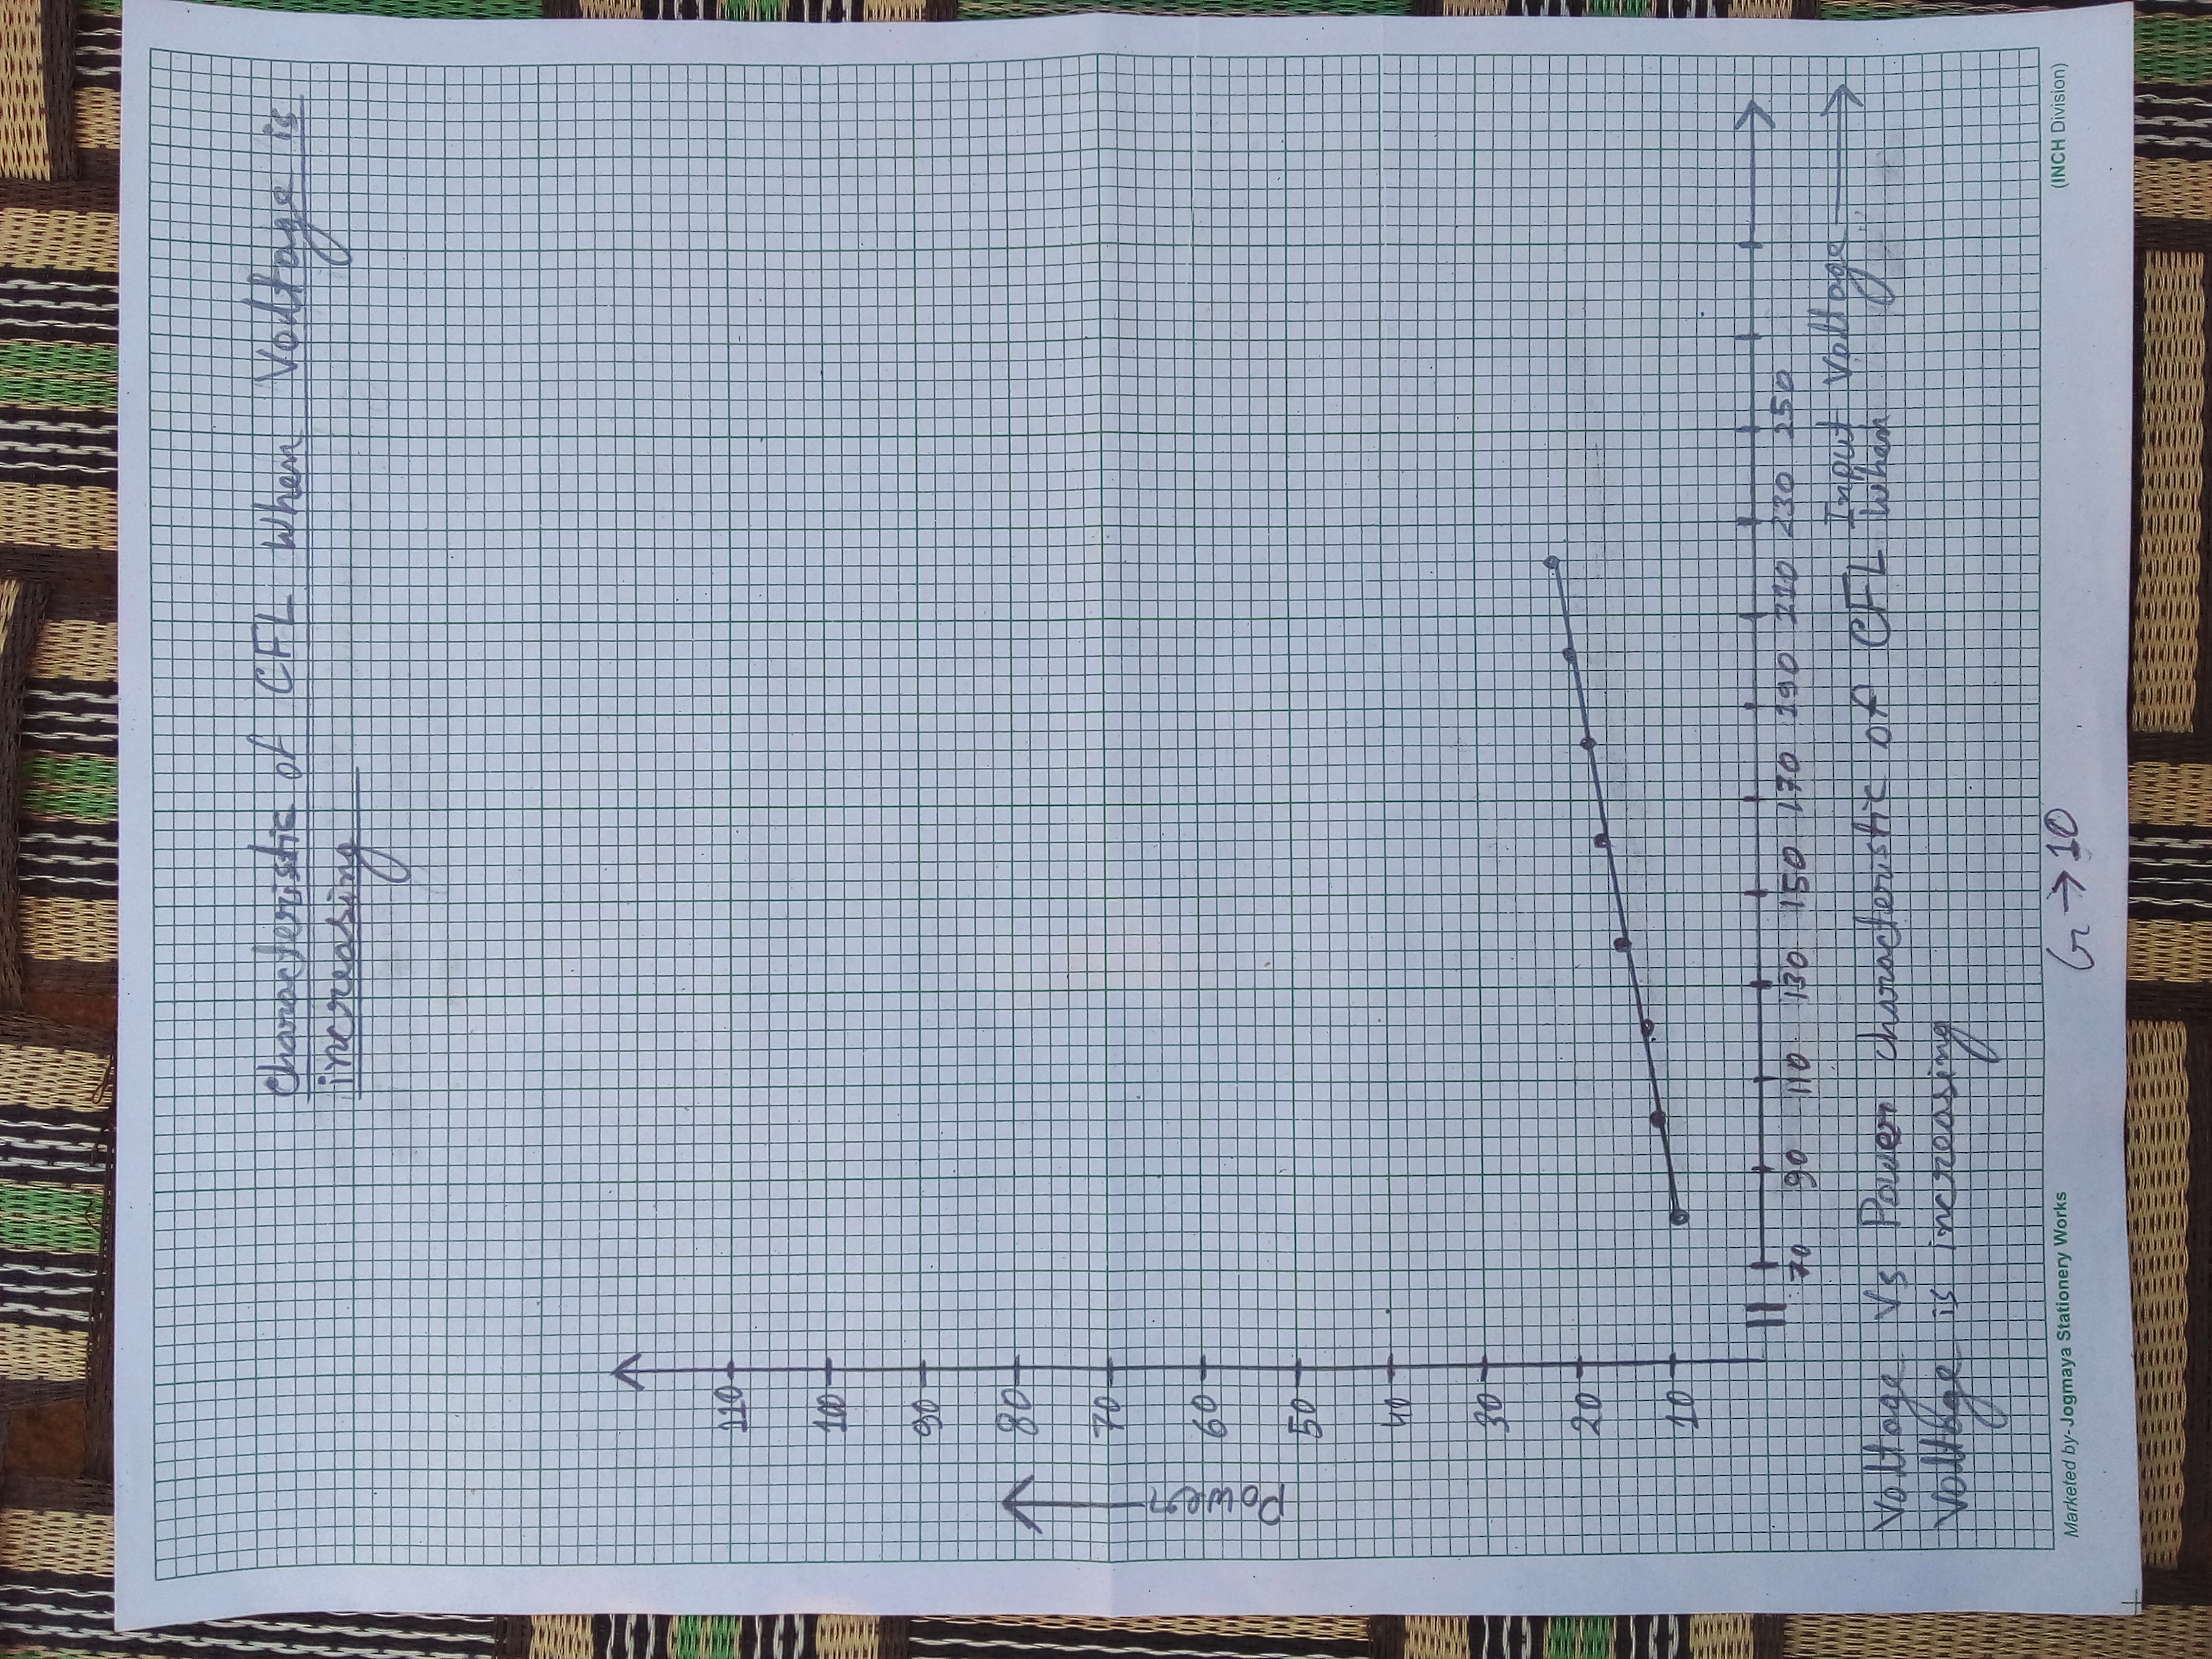 Characteristic of CFL When Voltage is
increasing
110
100
90
80
70
60
50
40
30
20
10
Power
70 90 110 130 150 170 190 210 230 250
Input Voltage
Voltage Vs Power characteristic of CFL When
Voltage is increasing
Marketed by-Jogmaya Stationery Works
G → 10
(INCH Division)